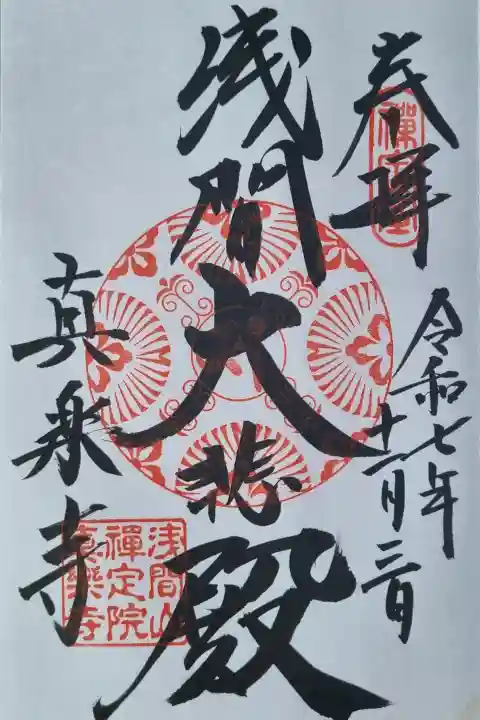 奉拝
令和七年
十一月三日
浅間大悲殿
真楽寺
浅間山
禅定院
真樂寺